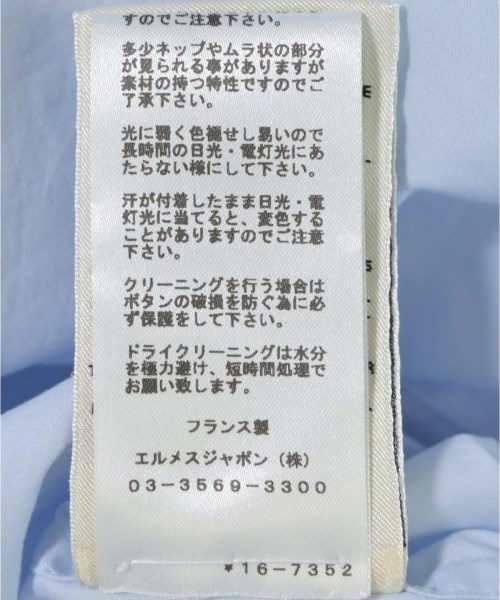 すのでご注意下さい。
多少ネップやムラ状の部分
が見られる事がありますが
素材の持つ特性ですのでご
了承下さい。
光に弱く色褪せし易いので
長時間の日光・電灯光にあ
たらない様にして下さい。
汗が付着したまま日光・電
灯光に当てると、変色する
ことがありますのでご注意
下さい。
クリーニングを行う場合は
ボタンの破損を防ぐ為に必
ず保護をして下さい。
ドライクリーニングは水分
を極力避け、短時間処理で
お願い致します。
フランス製
エルメスジャポン（株）
03-3569-3300
*16-7352